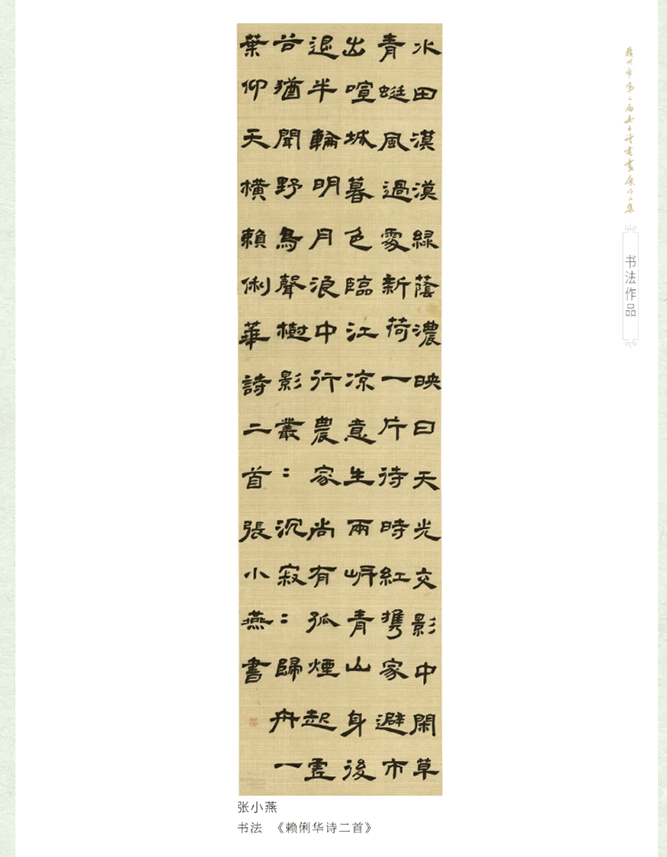 水田漠漠綠蔭濃映日天光交影中閑草
青蜓風過處新荷一片待時紅携家避市
出喧城暮色臨江凉意生兩岸青山身後
退半輪明月浪中行農家尚有孤煙起靈
谷猶聞野鳥聲樹影叢：沉寂：歸舟一
葉仰天橫賴俐華詩二首張小燕書
书法作品
张小燕
书法 《赖俐华诗二首》